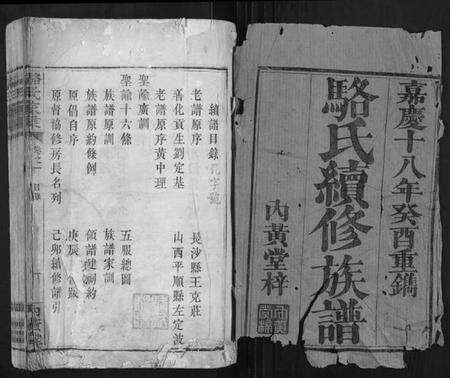 嘉慶十八年癸酉重鐫
駱氏續修族譜
內黃堂梓
續譜目錄
老譜原序
善化貢生劉定基
老譜原序黃中理
聖諭廣訓
聖諭十六條
族譜原訓
族譜原約條例
原倡自序
原督協修房長名列
長沙縣王克莊
山西平順縣左定波
五服總圖
族譜家訓
領譜建詞約
庚辰跋
己卯續修諦引